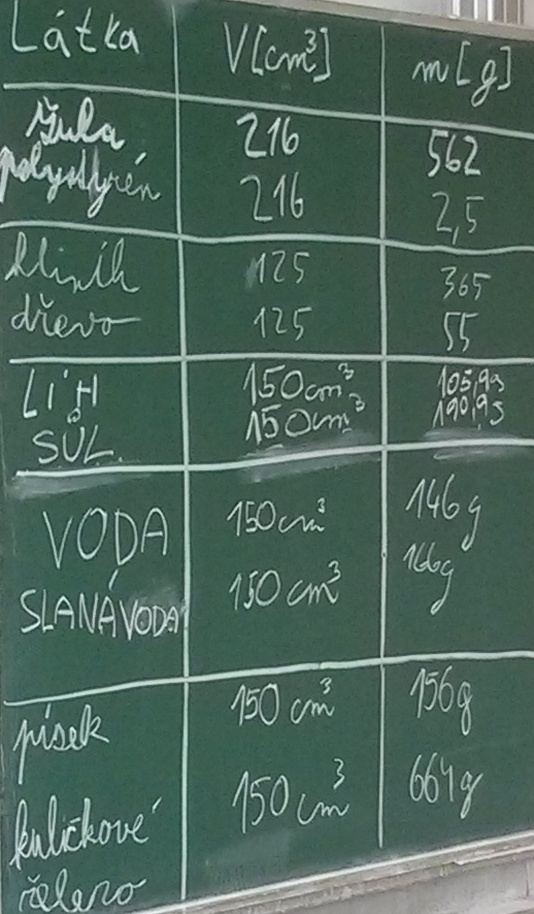 Látka V[cm³] m[g]
žula 216 562
polystyrén 216 2,5
hliník 125 365
dřevo 125 55
LÍH 150cm³ 105,9g
SŮL 150cm³ 190,9g
VODA 150cm³ 146g
SLANÁ VODA 150cm³ 166g
písek 150cm³ 156g
kuličkové 150cm³ 664g
železo